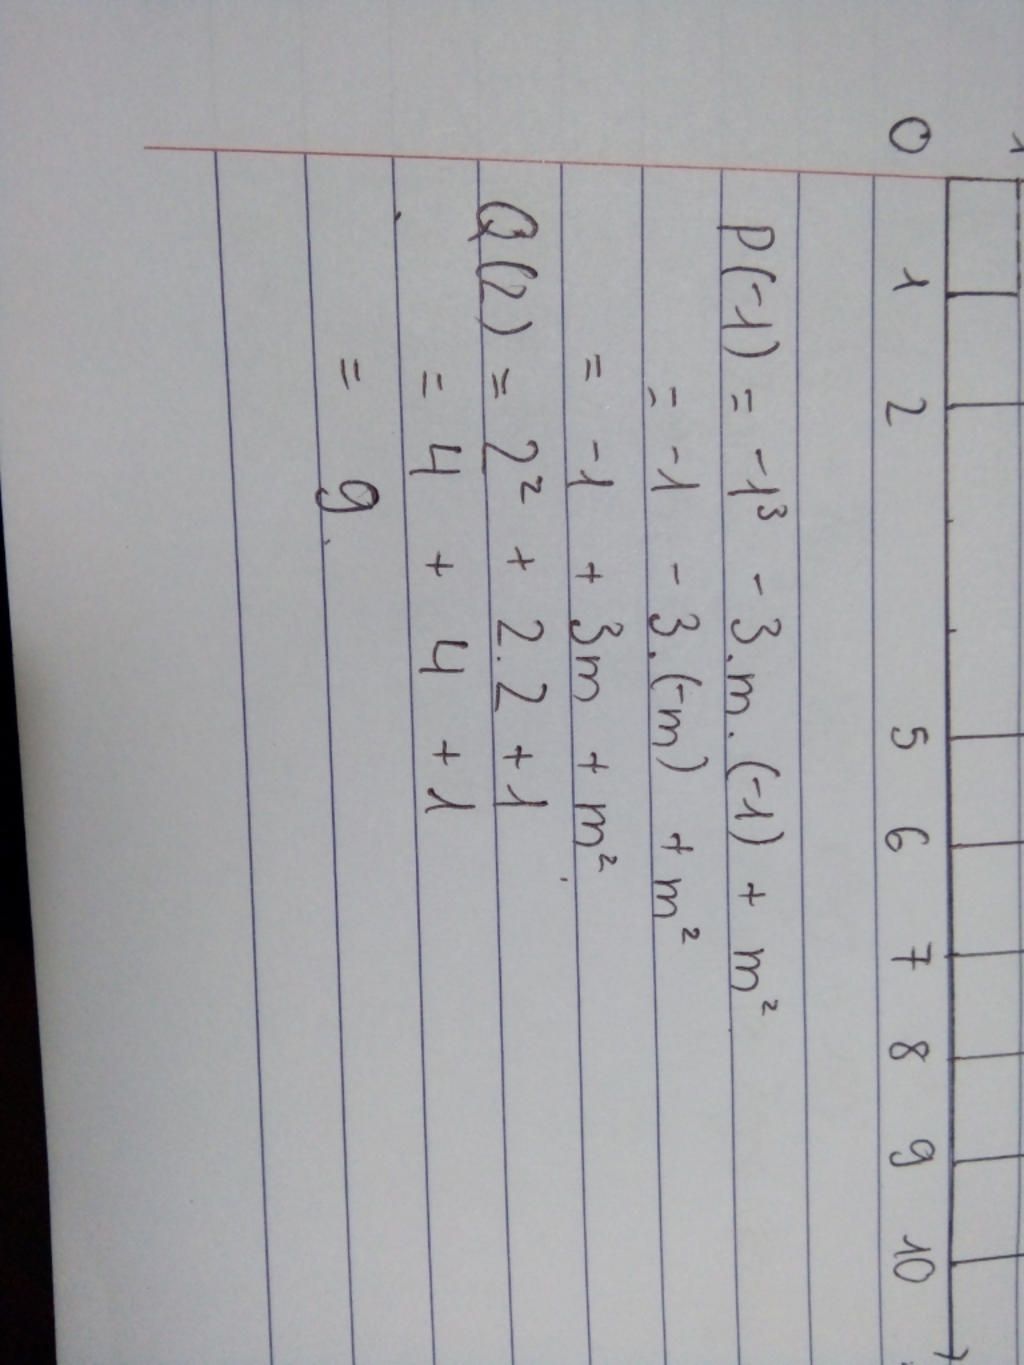 0 1 2 5 6 7 8 9 10
P(-1) = -1³ - 3.m.(-1) + m²
= -1 - 3.(-m) + m²
= -1 + 3m + m²
Q(2) = 2² + 2.2 + 1
= 4 + 4 + 1
= 9